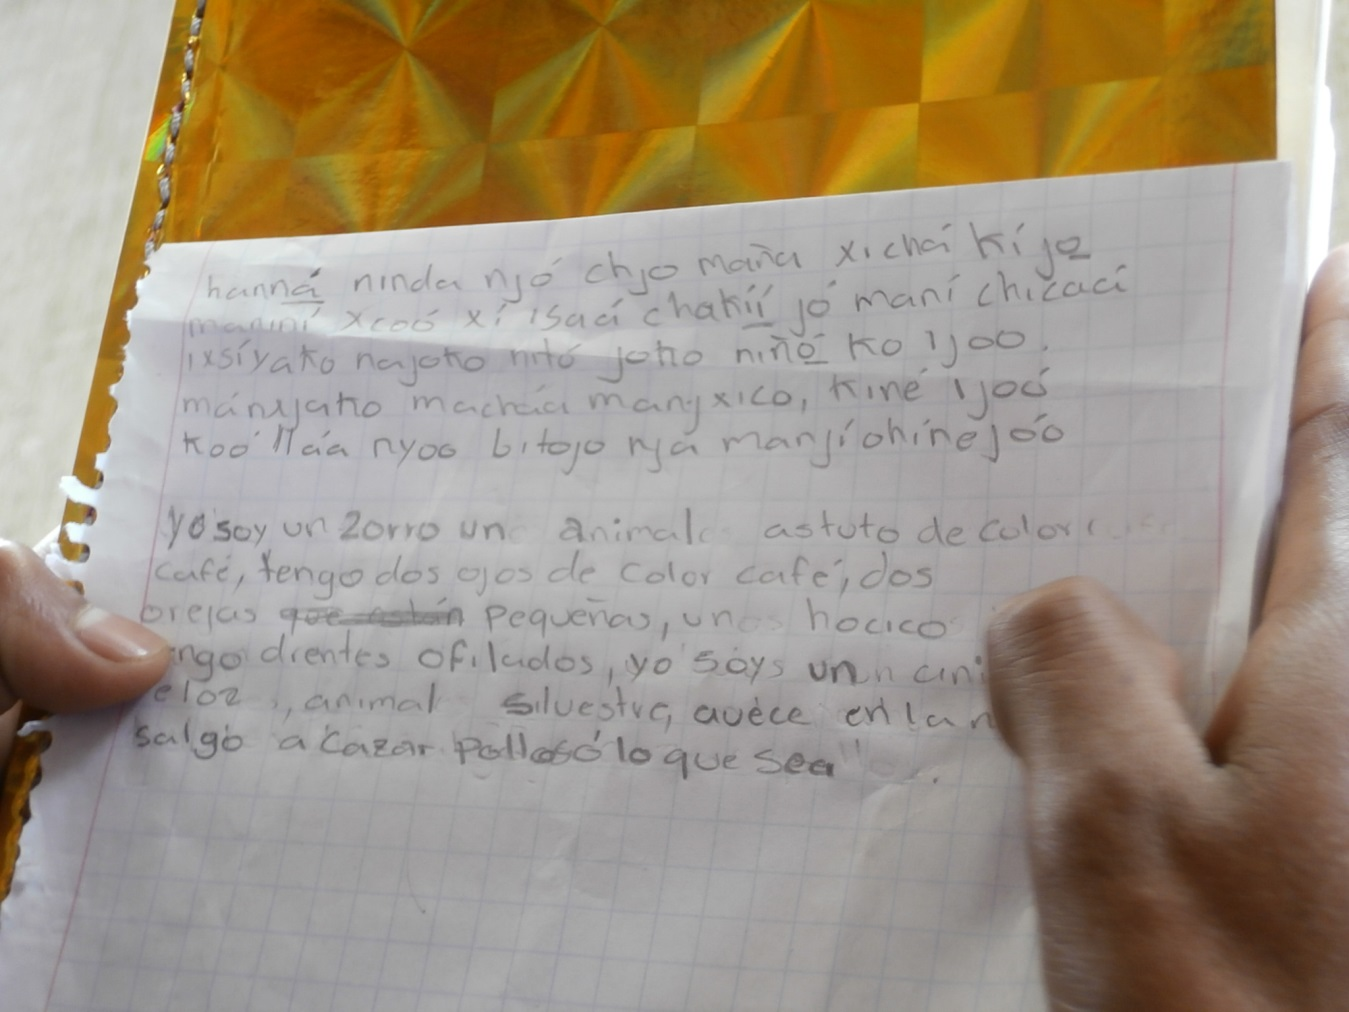 hanná ninda njó chjo maña xichaí kí je
maniní xcoó xí isací chakií jó maní chicací
ixsíyako najoko nitó joho niñó ko ijoo.
mánijaho machaá manyxico, kiné ijoó
koó llaá nyoo bitojo nja manjíohínejóo
yo soy un zorro un animal astuto de color
café, tengo dos ojos de color café, dos
orejas que están pequeñas, un hocico
ngo dientes ofilados, yo soys un ani
eloz, animal silvestre, avéce en la n
salgo a cazar pollos ó lo que sea"